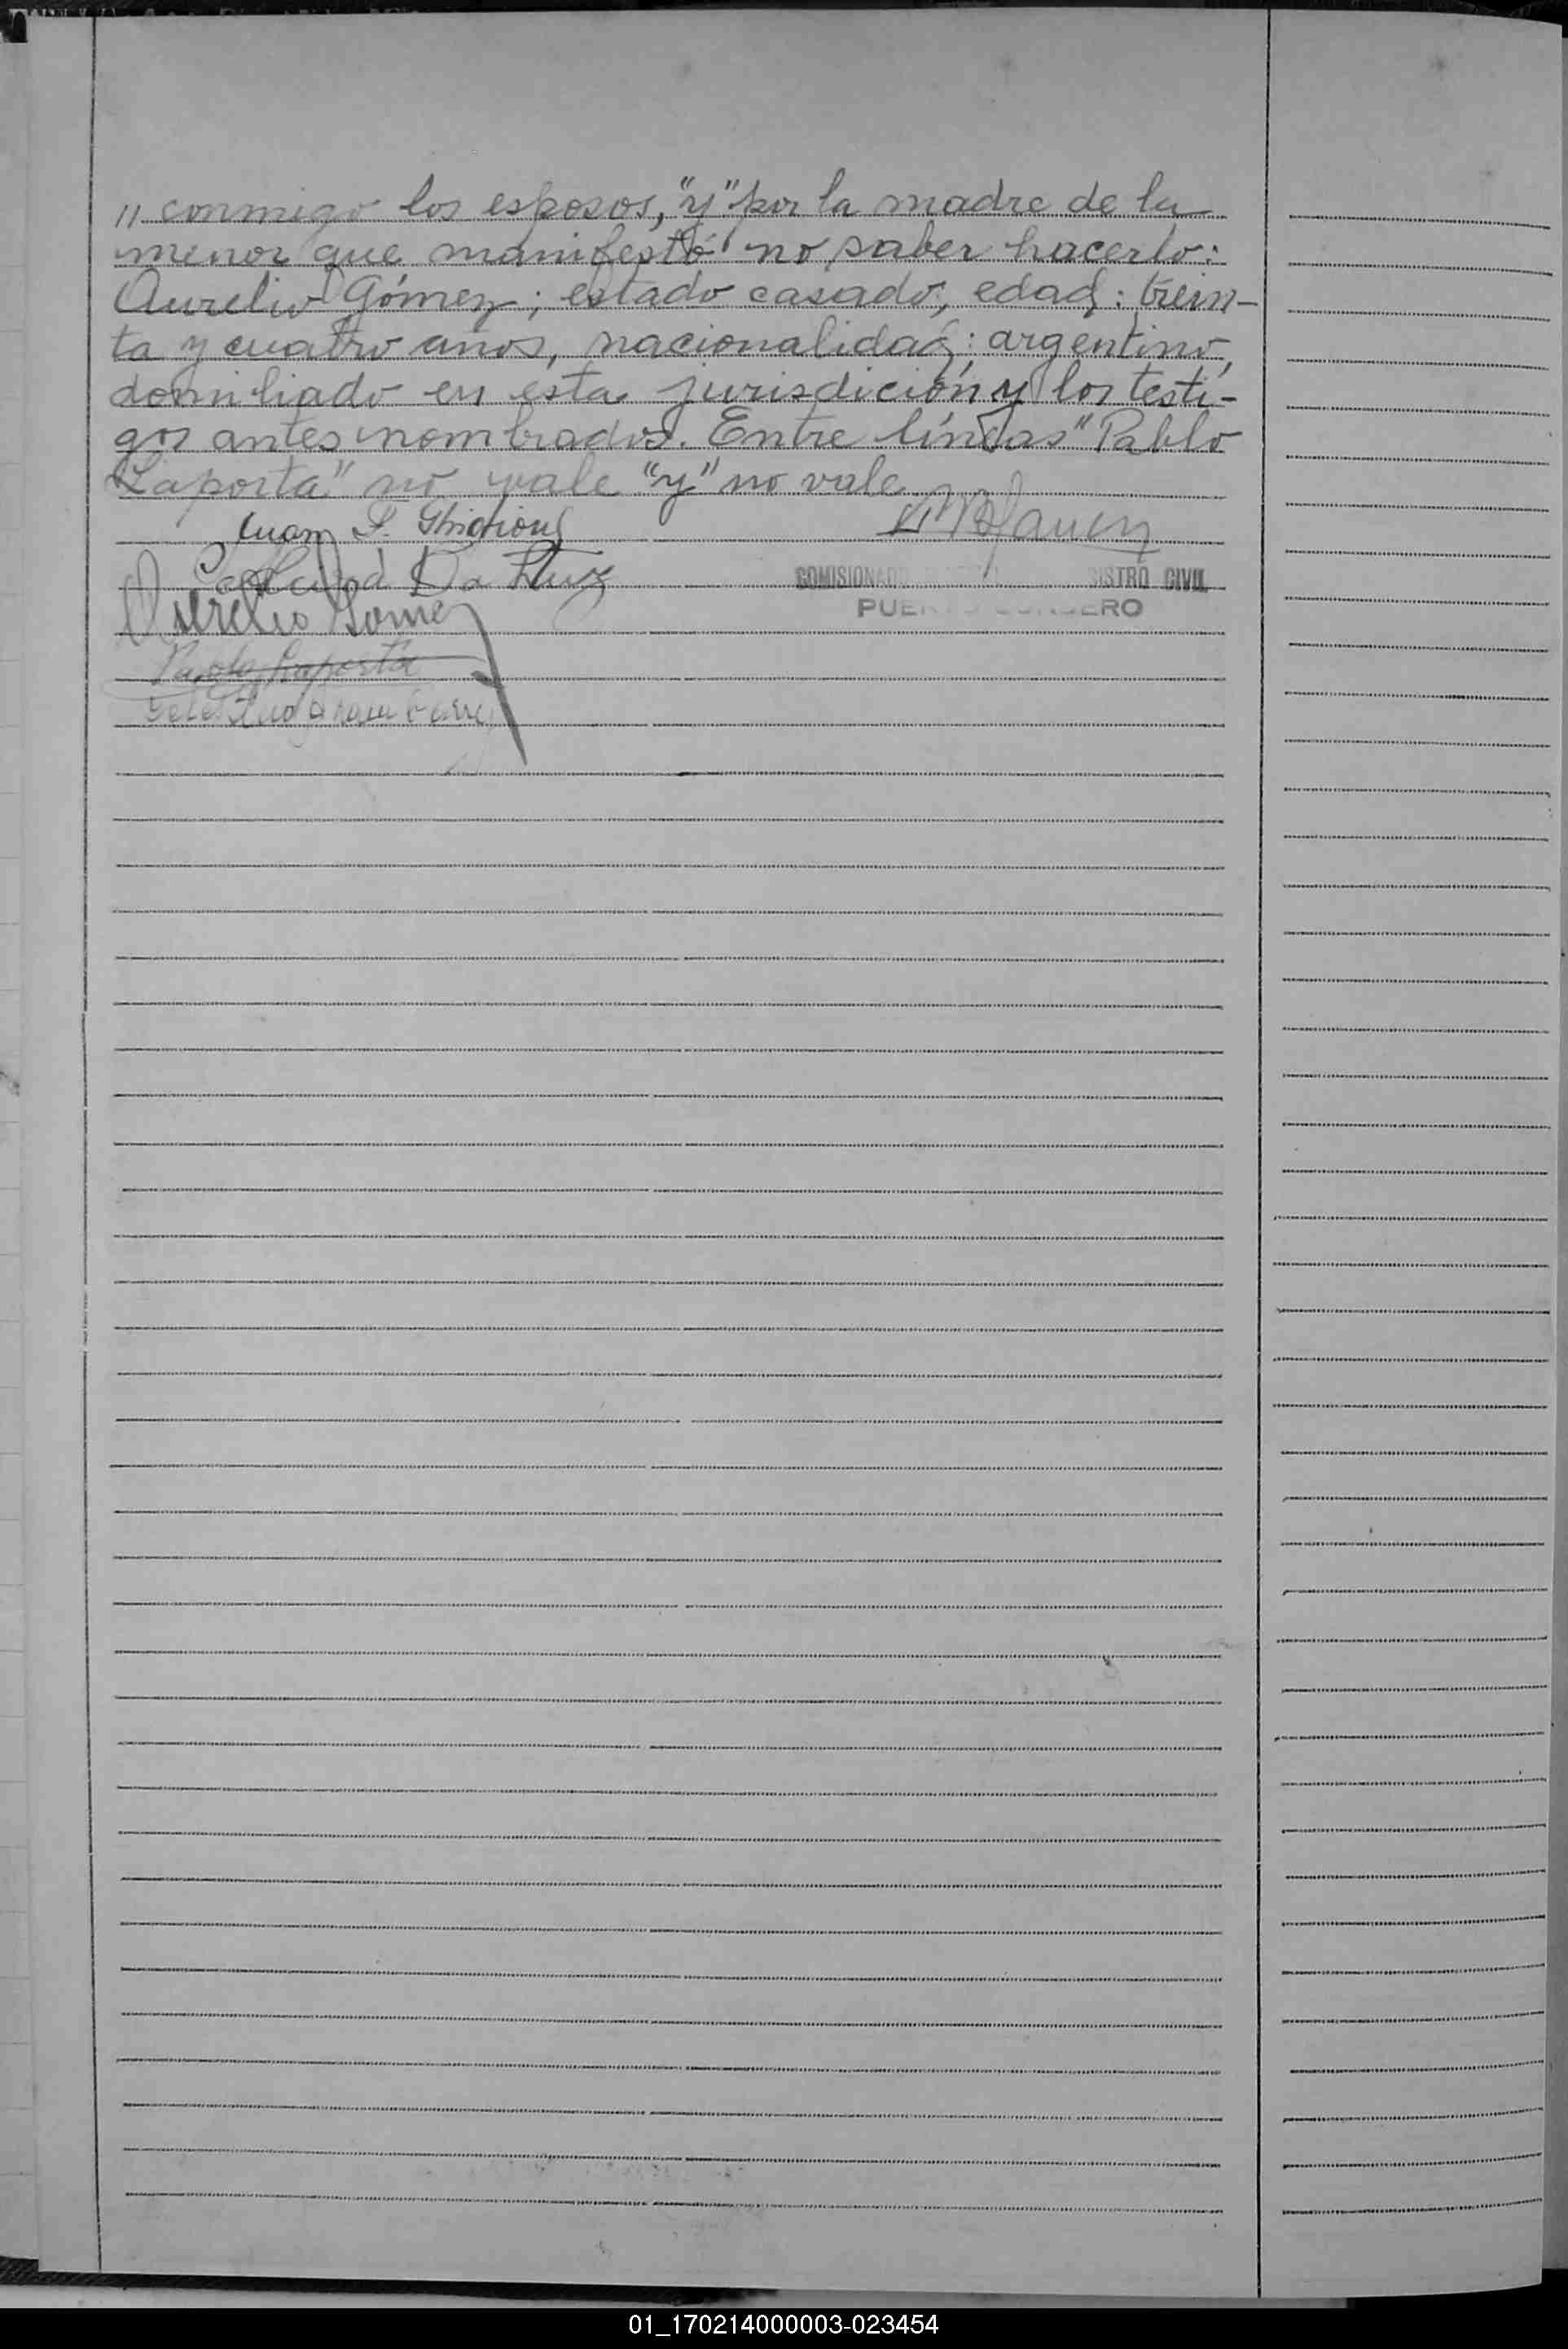 " conmigo los esposos, "y" por la madre de la
menor que manifestó no saber hacerlo:
Aurelio Gómez; estado casado, edad: trein-
ta y cuatro años, nacionalidad: argentino,
domiliado en ésta jurisdición y los testi-
gos antes nombrados. Entre líneas "Pablo
Laporta" no vale "y" no vale
Juan
COMISIONADO SISTRO CIVIL
Da Luz
PUE ERO
Aurelio Gomez
Laporta
01_170214000003-023454